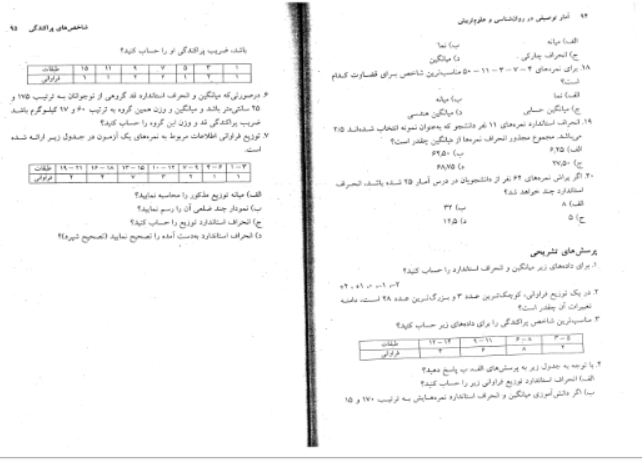 ۹۴ آمار توصیفی در روان‌شناسی و علوم تربیتی
الف) میانه ب) نما
ج) انحراف چارکی د) میانگین
۱۸. برای نمره‌های ۴ – ۷ – ۳ – ۱۱ – ۵۰ مناسب‌ترین شاخص برای قضاوت کدام
است؟
الف) نما ب) میانه
ج) میانگین حسابی د) میانگین هندسی
۱۹. انحراف استاندارد نمره‌های ۱۱ نفر دانشجو که به‌عنوان نمونه انتخاب شده‌اند ۲/۵
می‌باشد. مجموع مجذور انحراف نمره‌ها از میانگین چقدر است؟
الف) ۶,۲۵ ب) ۶۲,۵۰
ج) ۲۷,۵۰ د) ۶۸,۷۵
۲۰. اگر پراش نمره‌های ۶۴ نفر از دانشجویان در درس آمار ۲۵ شده باشد، انحراف
استاندارد چند خواهد شد؟
الف) ۸ ب) ۳۲
ج) ۵ د) ۱۲,۵
پرسش‌های تشریحی
۱. برای داده‌های زیر میانگین و انحراف استاندارد را حساب کنید؟
+۲ ، +۱ ، ۰ ، -۱ ، -۲
۲. در یک توزیع فراوانی، کوچک‌ترین عدد ۳ و بزرگ‌ترین عدد ۲۸ است، دامنه
تغییرات آن چقدر است؟
۳. مناسب‌ترین شاخص پراکندگی را برای داده‌های زیر حساب کنید؟
طبقات ۱۲ – ۱۴ ۹ – ۱۱ ۶ – ۸ ۳ – ۵
فراوانی ۴ ۶ ۸ ۲
۴. با توجه به جدول زیر به پرسش‌های الف، ب پاسخ دهید؟
الف) انحراف استاندارد توزیع فراوانی زیر را حساب کنید؟
ب) اگر دانش‌آموزی میانگین و انحراف استاندارد نمره‌هایش به ترتیب ۱۷۰ و ۱۵
شاخص‌های پراکندگی ۹۵
باشد، ضریب پراکندگی او را حساب کنید؟
طبقات ۱۵ ۱۱ ۹ ۷ ۵ ۳ ۱
فراوانی ۱ ۱ ۲ ۲ ۱ ۲ ۱
۶. درصورتی‌که میانگین و انحراف استاندارد قد گروهی از نوجوانان به ترتیب ۱۷۵ و
۲۵ سانتی‌متر باشد و میانگین و وزن همین گروه به ترتیب ۶۰ و ۱۷ کیلوگرم باشد
ضریب پراکندگی قد و وزن این گروه را حساب کنید؟
۷. توزیع فراوانی اطلاعات مربوط به نمره‌های یک آزمون در جدول زیر ارائه شده
است.
طبقات ۱۹ – ۲۱ ۱۶ – ۱۸ ۱۳ – ۱۵ ۱۰ – ۱۲ ۷ – ۹ ۴ – ۶ ۱ – ۳
فراوانی ۲ ۴ ۷ ۳ ۲ ۱ ۱
الف) میانه توزیع مذکور را محاسبه نمایید؟
ب) نمودار چند ضلعی آن را رسم نمایید؟
ج) انحراف استاندارد توزیع را حساب کنید؟
د) انحراف استاندارد به‌دست آمده را تصحیح نمایید (تصحیح شپرد)؟